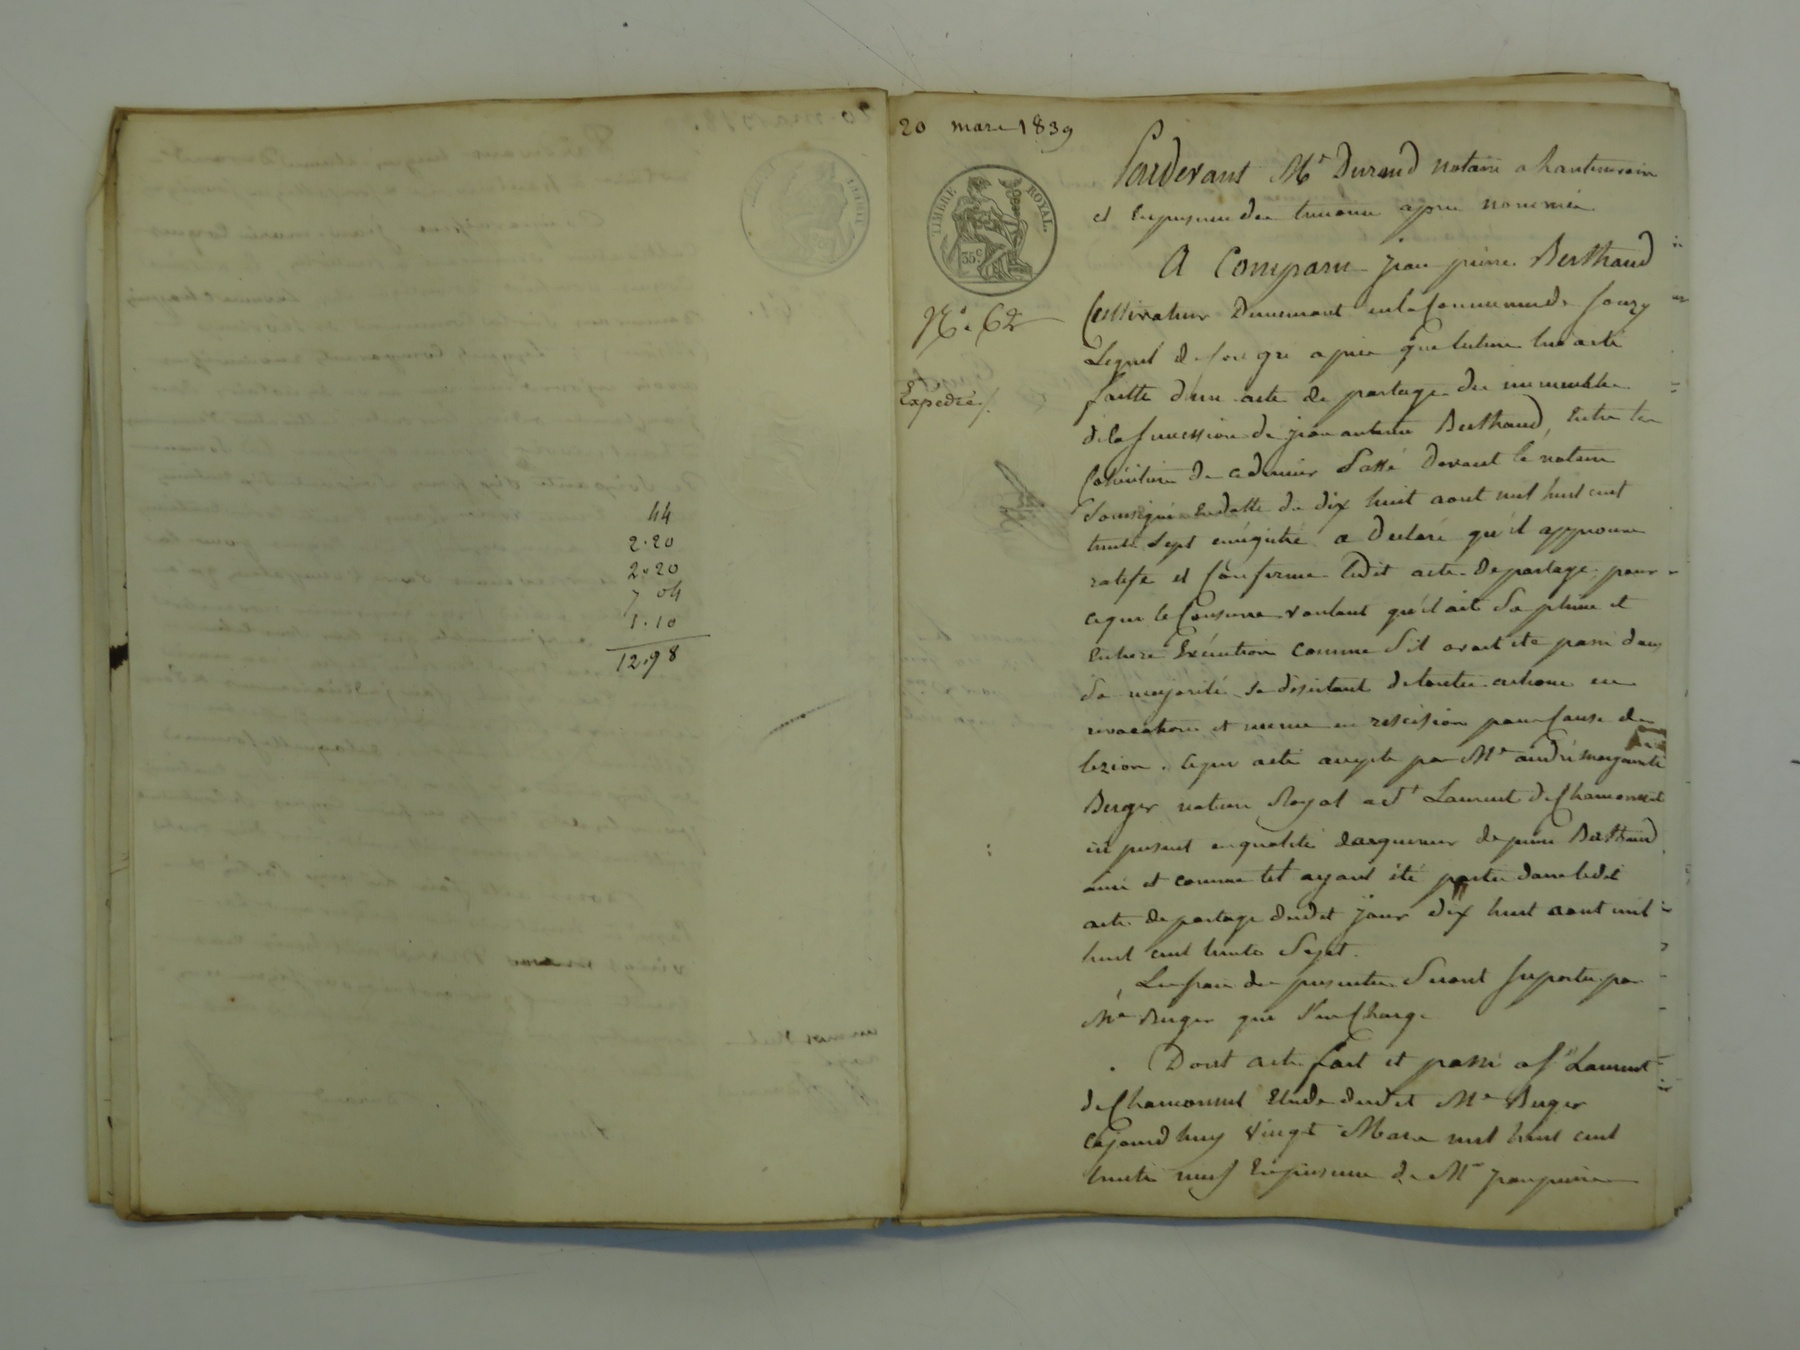 44
2.20
2.20
7 04
1.10
12.98
20 mars 1839
TIMBRE ROYAL.
35c
No. 62
Expédié/.
Pardevant Me Durand notaire a hauterivoire
et en presence des temoins apres nommés
A Comparu jean pierre Berthaud
Cultivateur demeurant en la Commune de Souzy
Lequel de son gré apres que lecture lui a eté
faitte d'un acte de partage des immeubles
de la succession de jean antoine Berthaud, entre les
Cohéritiers de ce dernier Passé devant le notaire
Soussigné en datte du dix huit aout mil huit cent
trente Sept enrégistré a declaré qu'il approuve
ratifie et Confirme ledit acte de partage pour
ce que le Conserne voulant qu'il ait Sa pleine et
entiere Exécution comme S'il avait ete passé dans
Sa majorité se désistant de toutes actions en
revocation et meme en rescision pour Cause de
lezion. Ce qui a eté accepté par Me andré marguerite
Berger notaire Royal a St Laurent de Chamousset
ici present en qualité d'acquereur de pierre Berthaud
ainé et comme tel ayant été partie dans ledit
acte de partage dudit jour dix huit aout mil
huit cent trente Sept.
Les frais des presentes Seront Suportés par
Me Berger qui S'en Charge
Dont acte fait et passé a St Laurent
de Chamousset Etude dudit Me Berger
Cejourd'huy vingt Mars mil huit cent
trente neuf En presence de Mr jean pierre